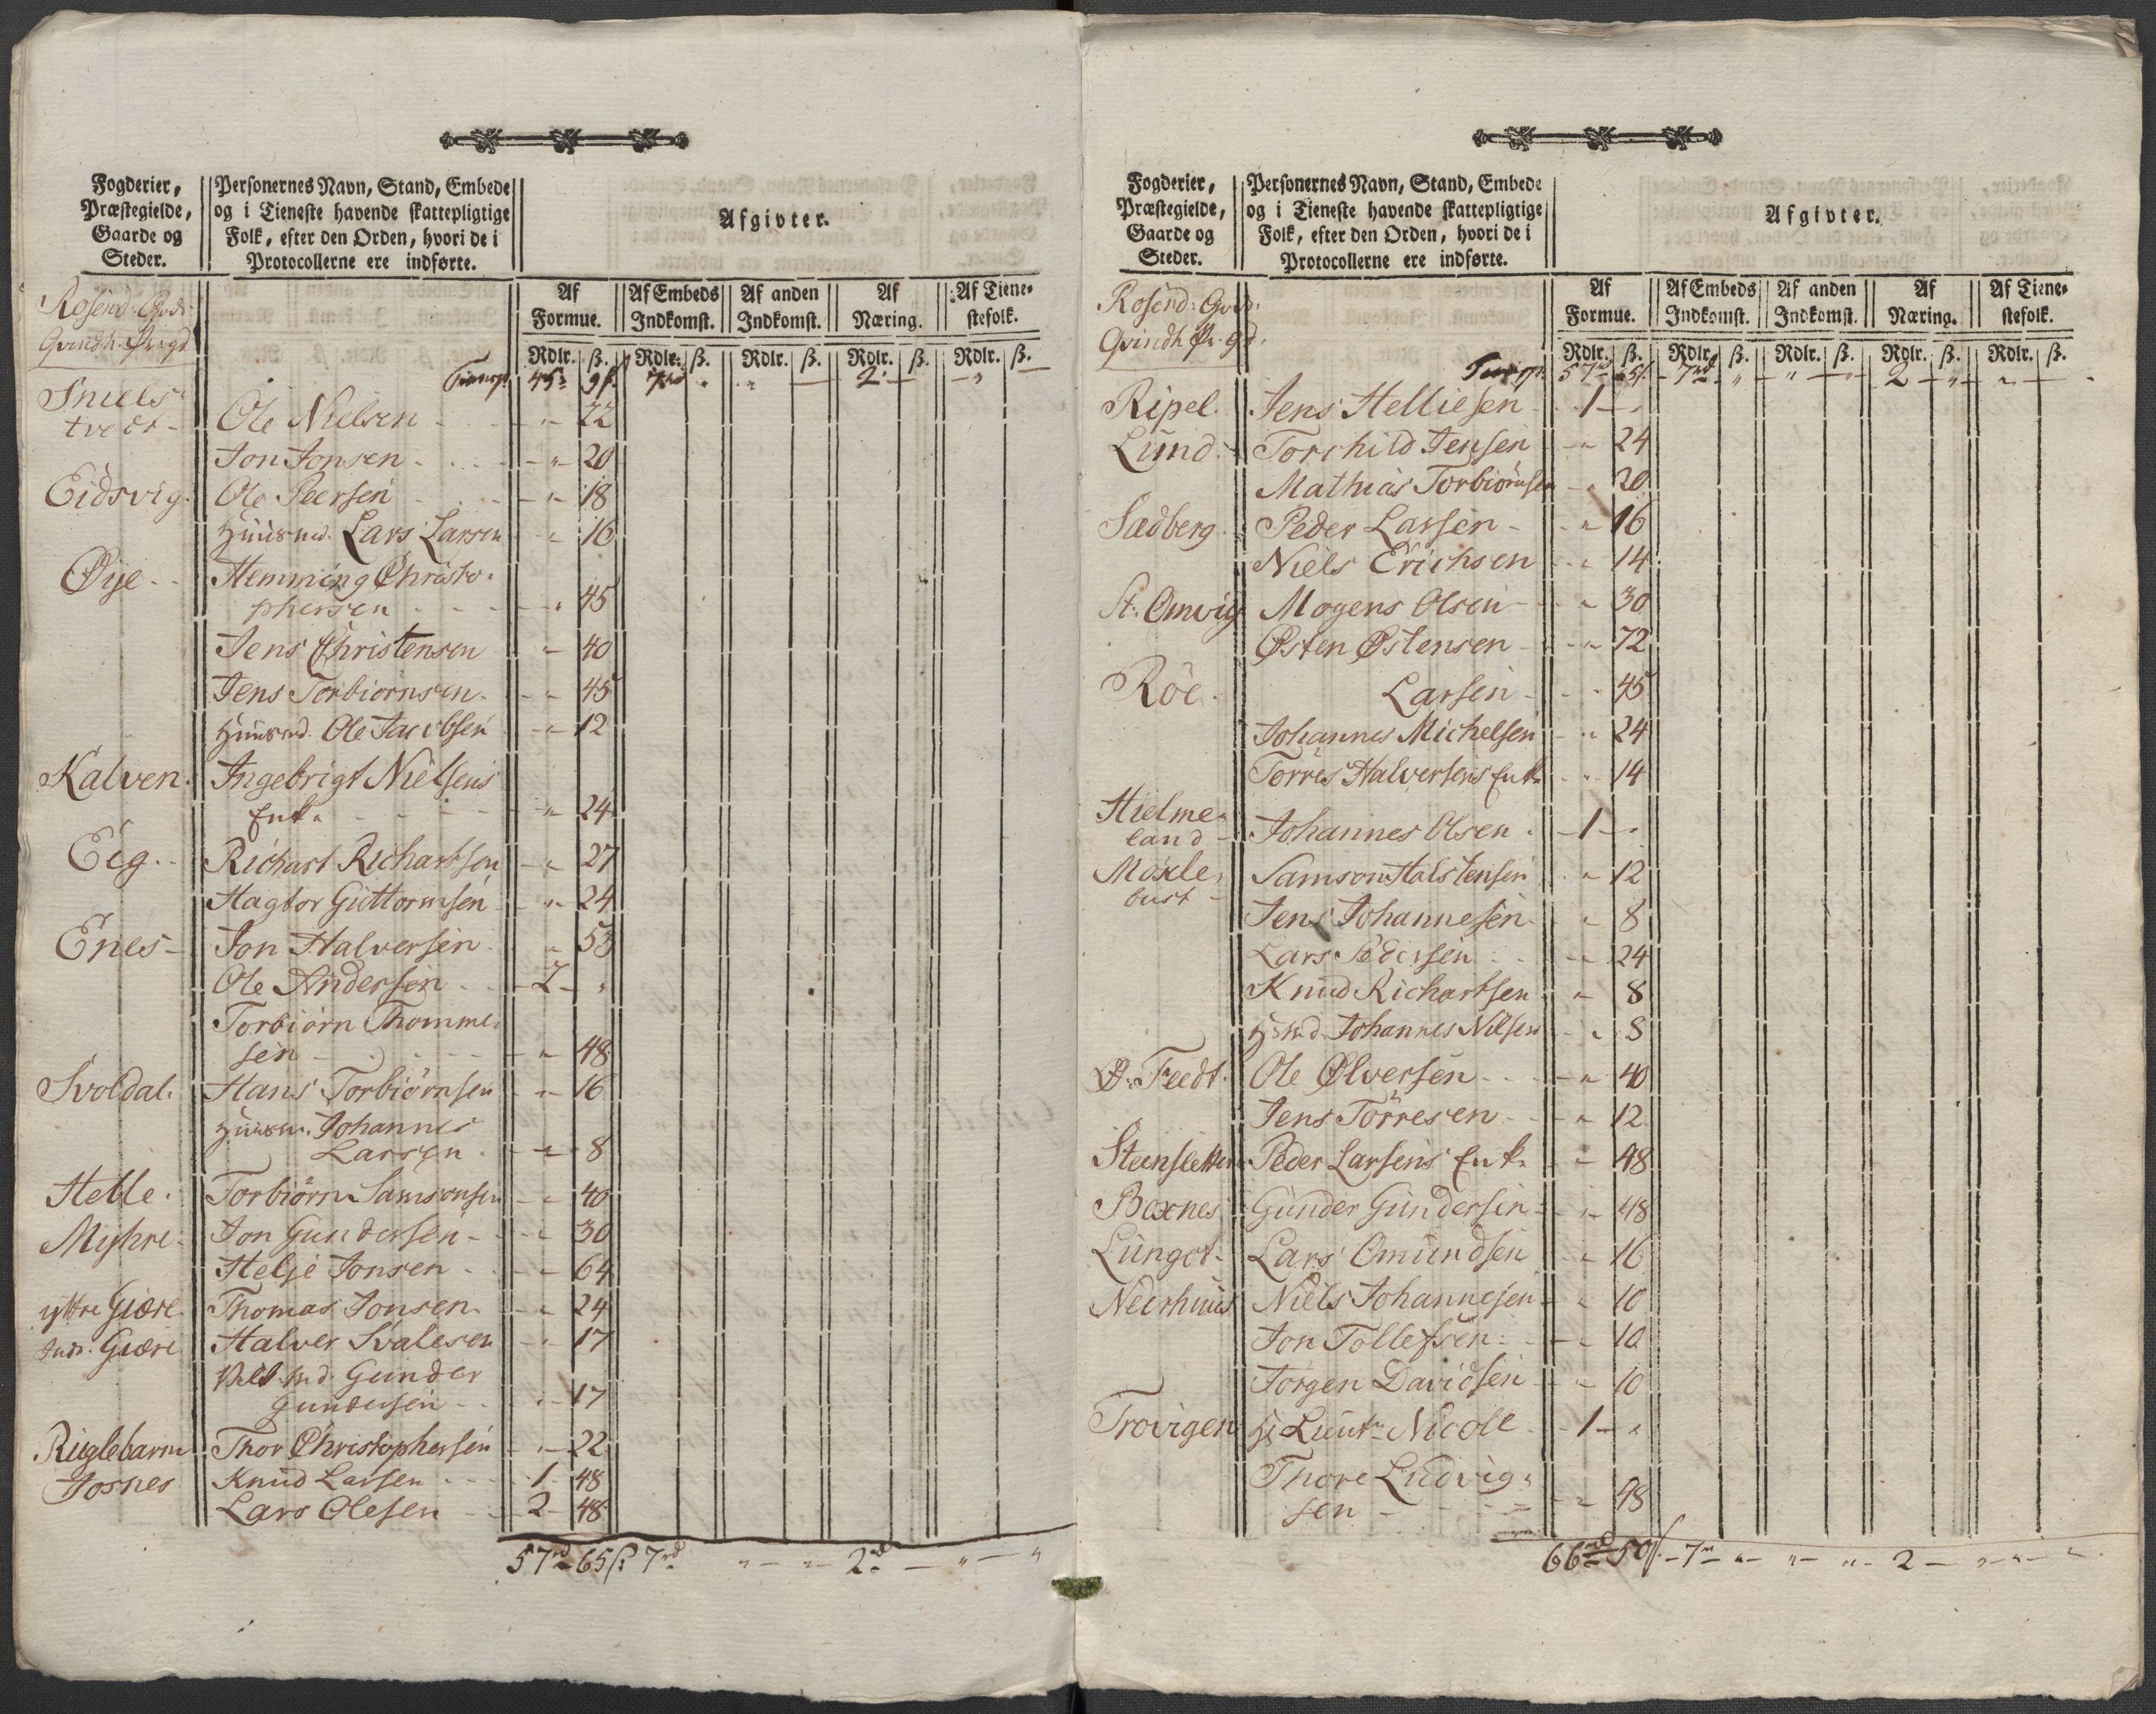 Fogderier, Præstegielde, Gaarde og Steder.
Personernes Navn, Stand, Embede og i Tieneste havende skattepligtige Folk, efter den Orden, hvori de i Protocollerne ere indførte.
Afgivter.
Af Formue. Af Embeds Indkomst. Af anden Indkomst. Af Næring. Af Tienestefolk.
Rosend: Gods
Rdlr. ß. Rdlr. ß. Rdlr. ß. Rdlr. ß. Rdlr. ß.
45 9ß 7 " " — 2 — — " —
tvedt - Ole Nielsen - " - 22
Jon Jonsen - " - 20
Eidsvig. Ole Peersen - " - 18
Huusmd. Lars Larsen " 16
Øye - Hemming Christo-
phersen - " 45
Jens Christensen - 40
Jens Torbiørnsen - " - 45
Huusmd. Ole Jacobsen - " - 12
Kalven. Ingebrigt Nielsens
Enke - " - 24
Eig. - Richart Richartsen - " 27
Hagtor Guttormsen - " - 24
Enes - Jon Halversen " 53
Ole Andersen - 2 - "
Torbiørn Thomme-
sen - " - 48
Svoldal. Hans Torbiørnsen - " - 16
Huusm. Johannes
Larsen - " - 8
Helle. Torbiørn Samsonsen - " 40
Myhre - Jon Gundersen - " 30
Helje Jonsen - " - 64
yttre Giære. Thomas Jonsen - " 24
Indr. Giære Halver Svalesen - " - 17
md. Gunder
Gundersen - " - 17
Riiglebarm Thor Christophersen " - 22
Josnes Knud Larsen - 1 48
Lars Olesen - 2 - 48
57rd 65ß 7rd " — " — 2rd — " — "
Fogderier, Præstegielde, Gaarde og Steder.
Personernes Navn, Stand, Embede og i Tieneste havende skattepligtige Folk, efter den Orden, hvori de i Protocollerne ere indførte.
Afgivter.
Af Formue. Af Embeds Indkomst. Af anden Indkomst. Af Næring. Af Tienestefolk.
Rosend: Gods
Qvindh. Pr. gd.
Rdlr. ß. Rdlr. ß. Rdlr. ß. Rdlr. ß. Rdlr. ß.
57rd 65ß - 7rd " - " - " - 2 - " - " -
Ripel. Jens Helliesen 1 - "
Lund. Torchild Jensen - " 24
Mathias Torbiørnsen " 20
Sadberg Peder Larsen - " 16
Niels Erichsen - " 14
St. Omvig Mogens Olsen - " 30
Østen Østensen - " 72
Röe. Larsen - - 45
Johannes Michelsen - " 24
Torres Halversens Enke " 14
Hielme-
land - Johannes Olsen - 1 - "
Moxle-
bust - Samson Halstensen - " 12
Jens Johannesen " 8
Lars Pedersen - " 24
Knud Richartsen " 8
Hsmd. Johannes Nilsen - " 8
Ø: Feedt. Ole Ølversen - " 40
Jens Torresen - " 12
Steensletten Peder Larsens Enke - 48
Boxnes Gunder Gundersen - " - 48
Lunget - Lars Omundsen " 16
Neerhuus Niels Johannesen - " 10
Jon Tollefsen - " 10
Jörgen Davidsen - " 10
Trovigen Hr Lieut. Nicoll - 1 - "
Thore Ludvig-
sen - - " 48
66rd 50ß - 7rd " - " - " - 2 - " - " - "